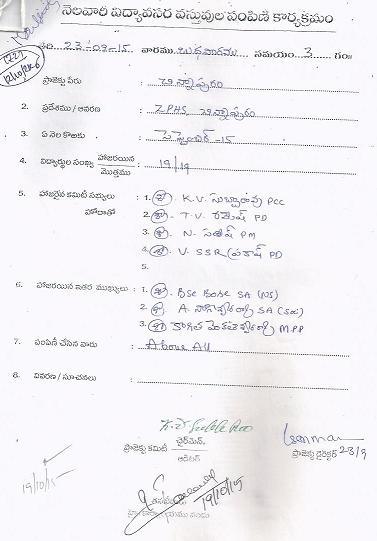 నెలవారీ విద్యావసర వస్తువుల పంపిణీ కార్యక్రమం
తేది: 23-09-15 వారము బుధవారము సమయం 3 గం॥
1221
12/10/2015
ప్రాజెక్టు పేరు : చిన్నాపురం
2. ప్రదేశము / ఆవరణ : ZPHS, చిన్నాపురం
3. ఏ నెల కొఱకు : సెప్టెంబర్ -15
4. విద్యార్థుల సంఖ్య హాజరయిన / మొత్తము : 19/19
5. హాజరైన కమిటీ సభ్యులు హోదాతో : 1. శ్రీ. K.V. సుబ్బారావు PCC
2. శ్రీ. T.V. రమేష్ PD
3. శ్రీ. N. సతీష్ PM
4. శ్రీ. V. SSR ప్రకాష్ PD
5.
6. హాజరయిన ఇతర ముఖ్యులు : 1. శ్రీ. BSc Bose SA (NS)
2. శ్రీ. A. నాగేశ్వరరావు SA
3. శ్రీ. కాగిత వెంకటేశ్వరరావు M.P.P
7. పంపిణీ చేసిన వారు : Above All
8. వివరణ / సూచనలు :
K.V Subba Rao
ప్రాజెక్టు కమిటీ ఛైర్‌మెన్. / ఆడిటర్
ప్రాజెక్టు డైరెక్టర్ 23/9
19/10/15
19/10/15